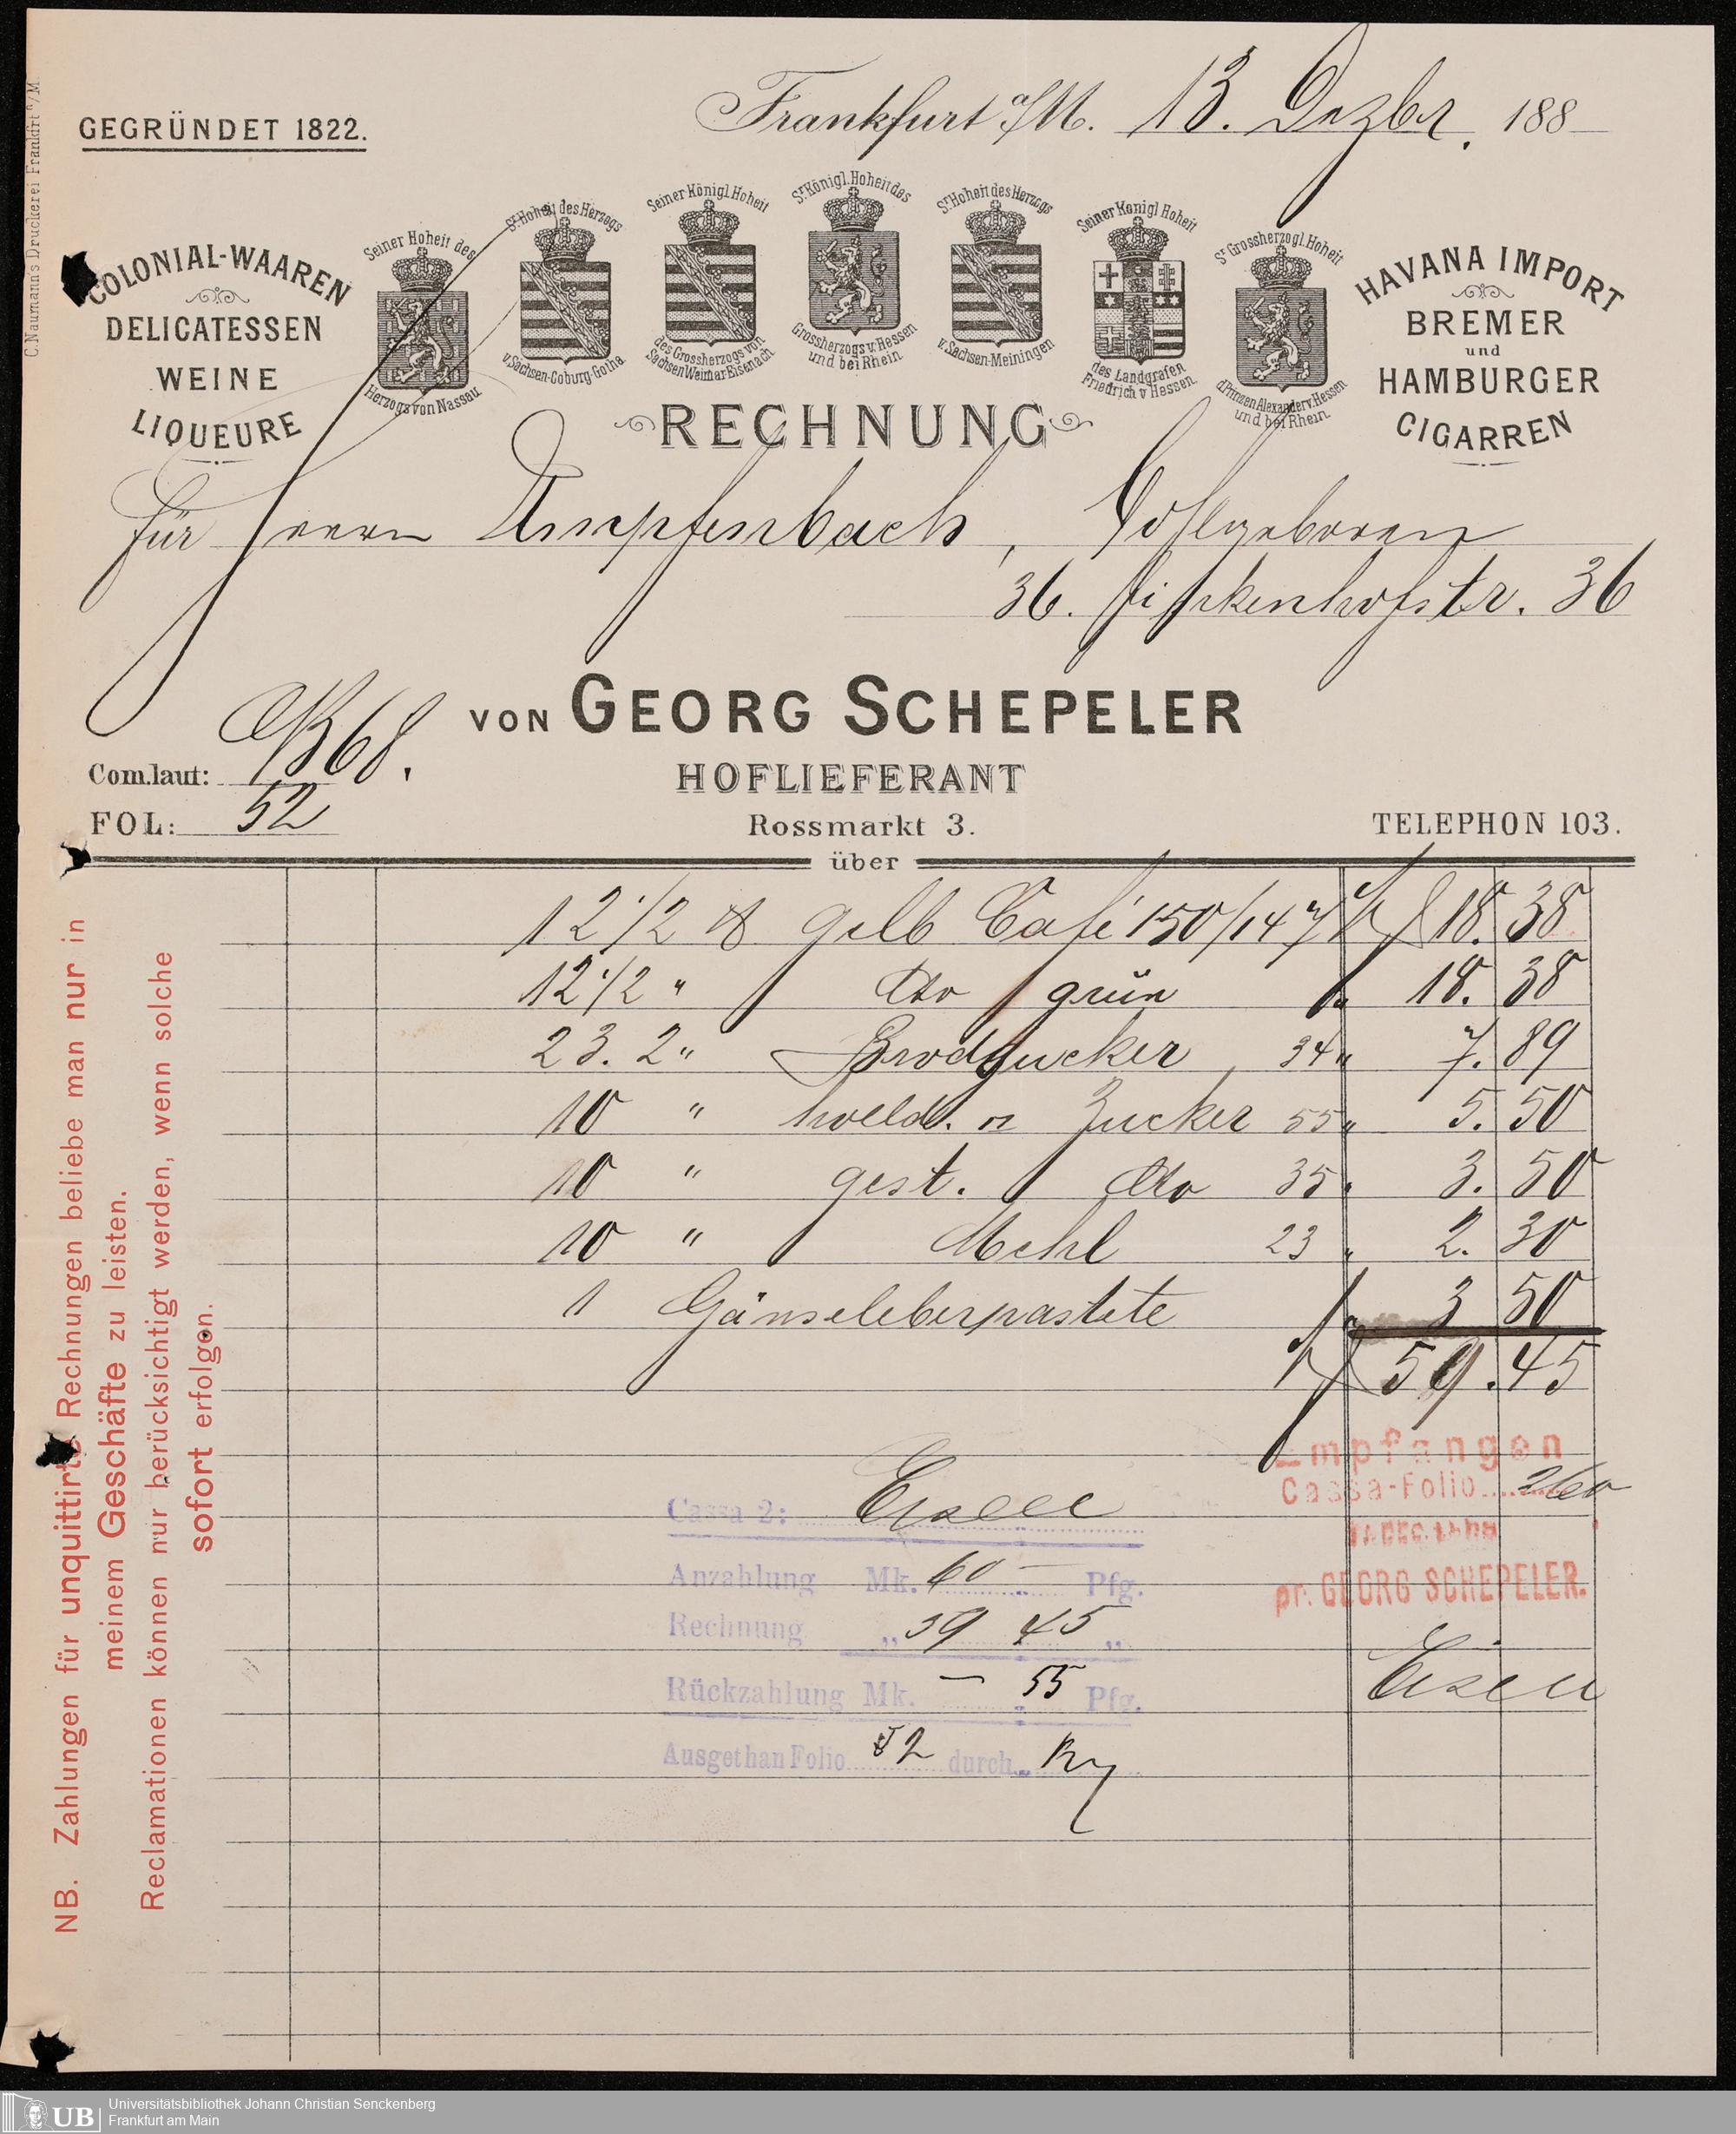 C. Naumann's Druckerei Frankfurt a/M.
GEGRÜNDET 1822.
Frankfurt a/M. 13. Dezbr. 188
COLONIAL-WAAREN
DELICATESSEN
WEINE
LIQUEURE
Seiner Hoheit des
Herzogs von Nassau.
Sr. Hoheit des Herzogs
v. Sachsen-Coburg-Gotha.
Seiner Königl. Hoheit
des Grossherzogs von
Sachsen Weimar-Eisenach.
Sr. Königl. Hoheit des
Grossherzogs v. Hessen
und bei Rhein.
Sr. Hoheit des Herzogs
v. Sachsen-Meiningen
Seiner Königl Hoheit
des Landgrafen
Friedrich v Hessen.
Sr Grossherzogl. Hoheit
d. Prinzen Alexander v. Hessen
und bei Rhein.
HAVANA IMPORT
BREMER
und
HAMBURGER
CIGARREN
RECHNUNG
für Herrn Umpfenbach, Wohlgeboren
36. Finkenhofstr. 36
VON GEORG SCHEPELER
HOFLIEFERANT
Rossmarkt 3.
TELEPHON 103.
Com. laut: B68.
FOL: 52
über
12 1/2 ℔ gelb Café 150/147 18. 38
12 1/2 " dto grün " 18. 38
23. 2 " Brodzucker 34 " 7. 89
10 " Zucker 55 " 5. 50
10 " gest. dto 35 " 3. 50
10 " Mehl 23 " 2. 30
1 Gänseleberpastete 3 50
59. 45
Empfangen
Cassa-Folio 260
pr. GEORG SCHEPELER.
Cassa 2:
Anzahlung Mk. 60 — Pfg.
Rechnung „ 59 45 „
Rückzahlung Mk. — 55 Pfg.
Ausgethan Folio 52 durch
NB. Zahlungen für unquittirte Rechnungen beliebe man nur in
meinem Geschäfte zu leisten.
Reclamationen können nur berücksichtigt werden, wenn solche
sofort erfolgen.
UB
Universitätsbibliothek Johann Christian Senckenberg
Frankfurt am Main